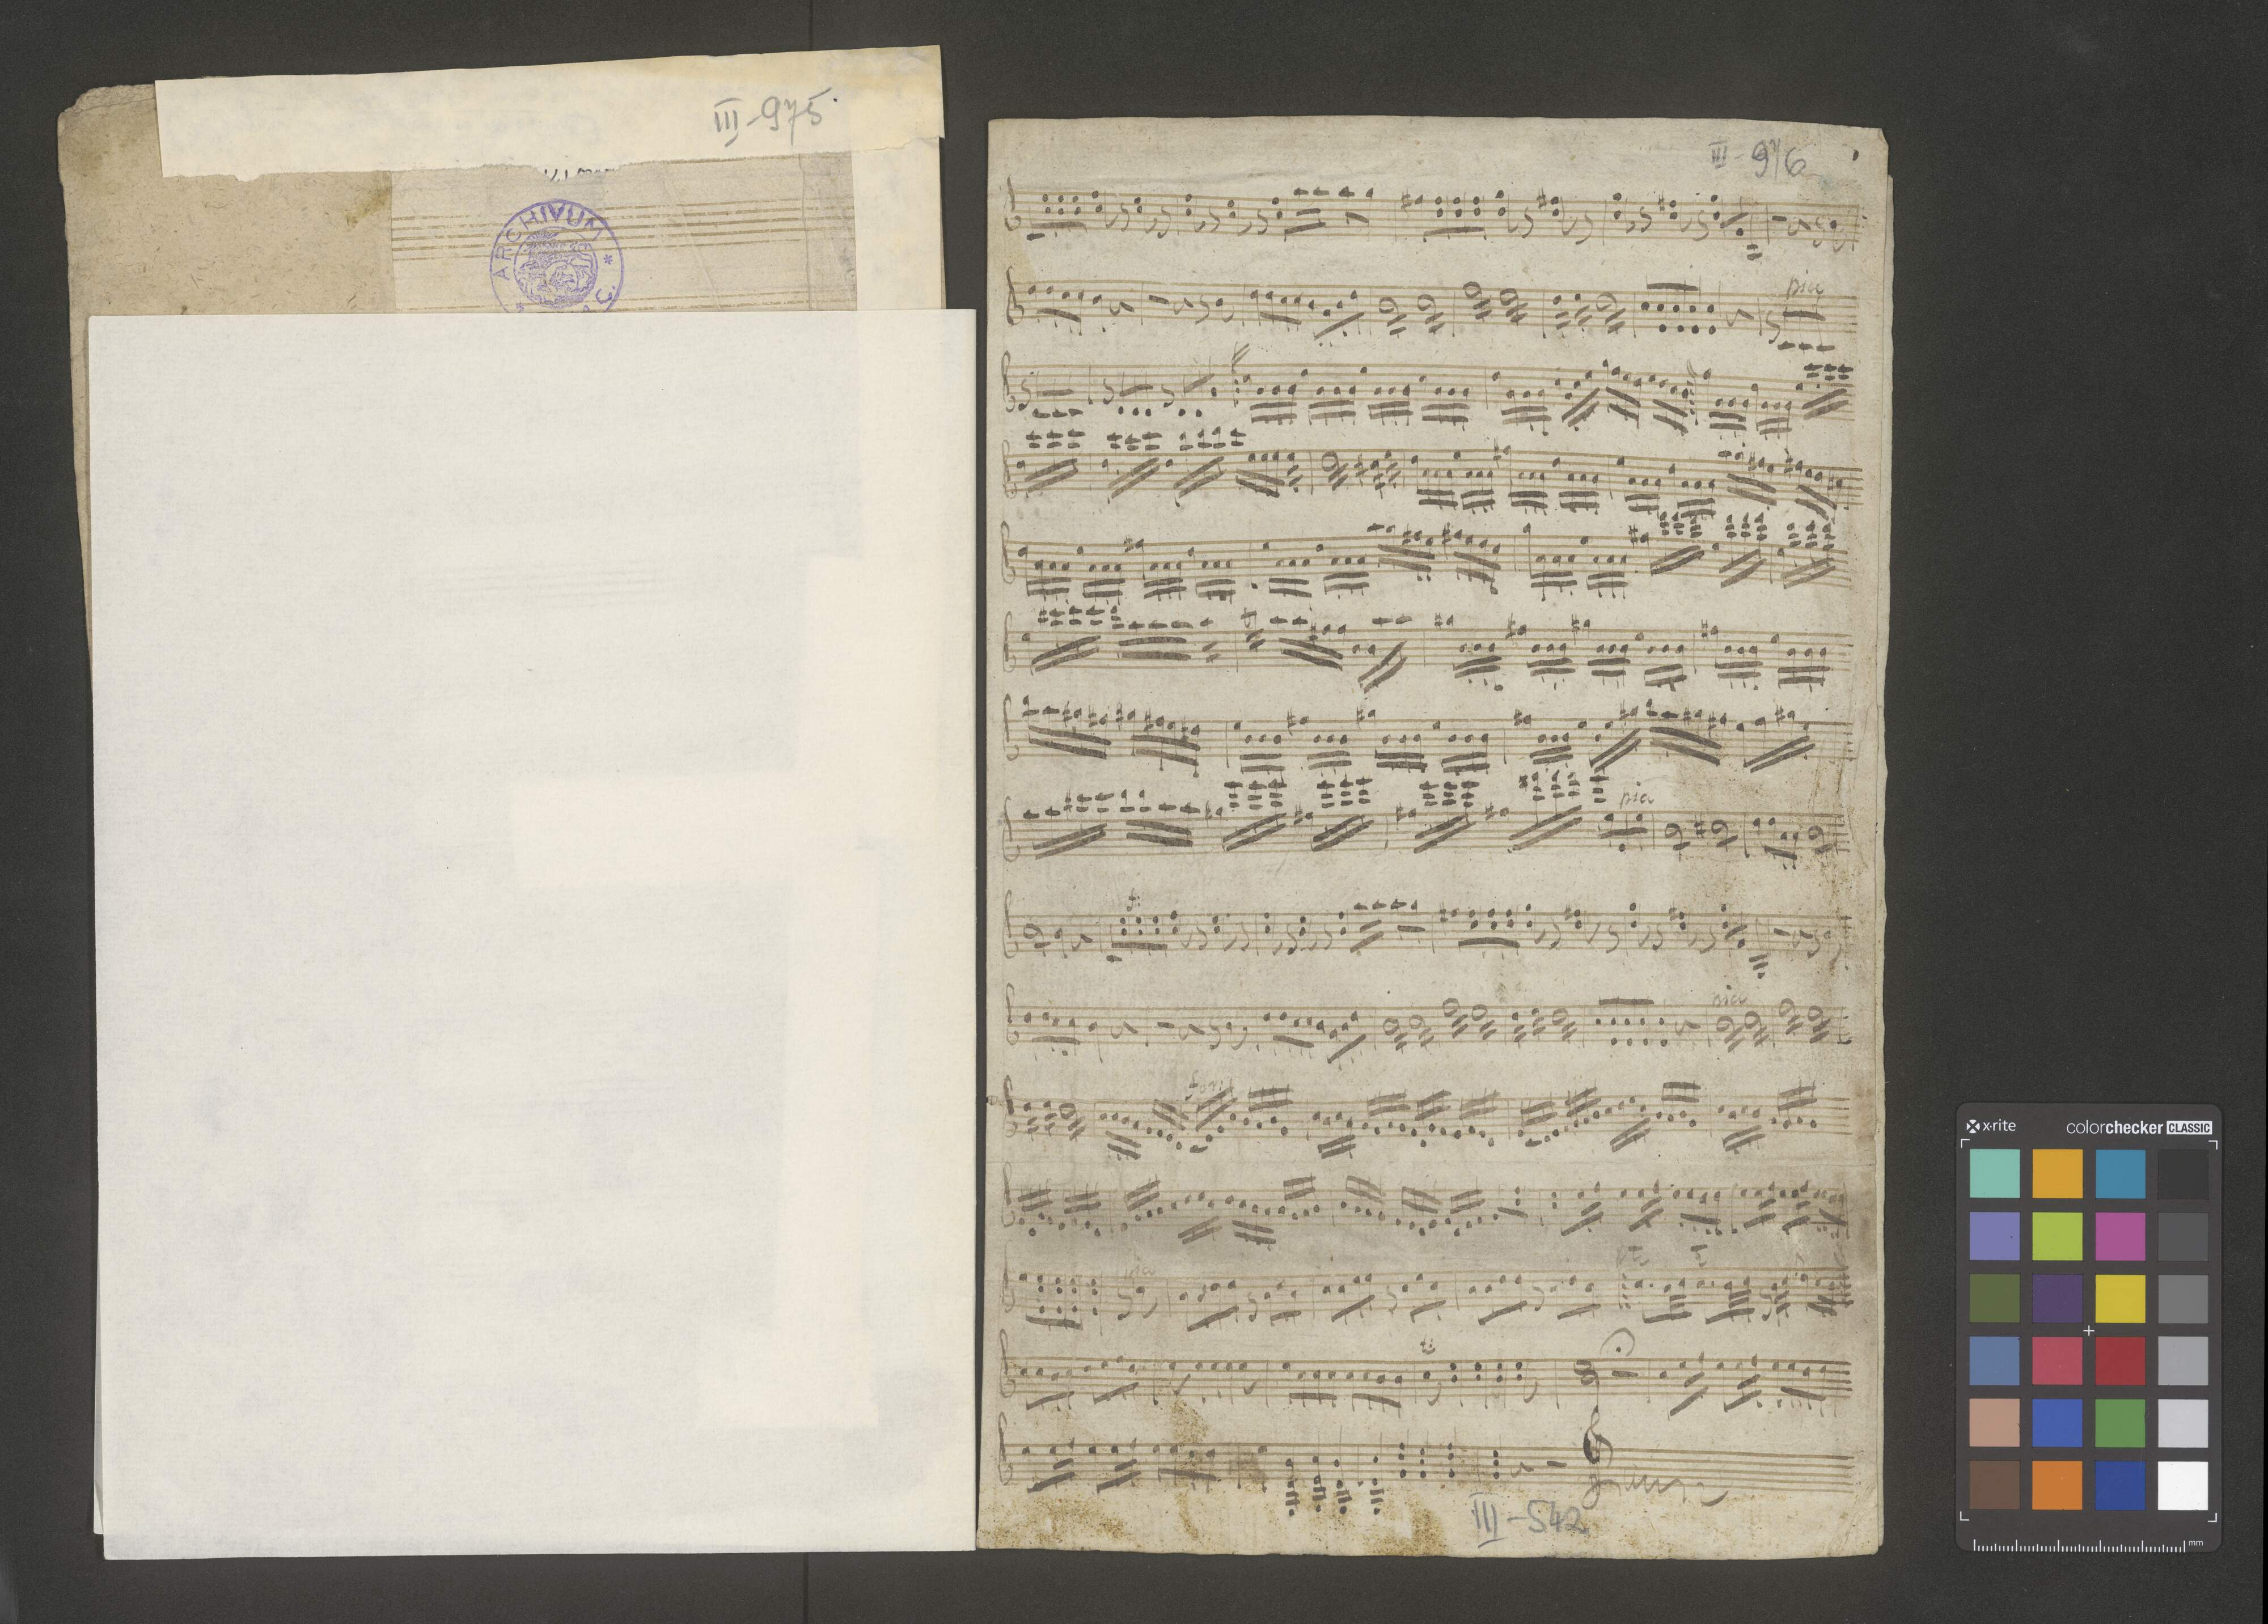 III-975
ARCHIVUM
III-976
pia
pia
pia
III-542
x·rite
colorchecker CLASSIC
mm